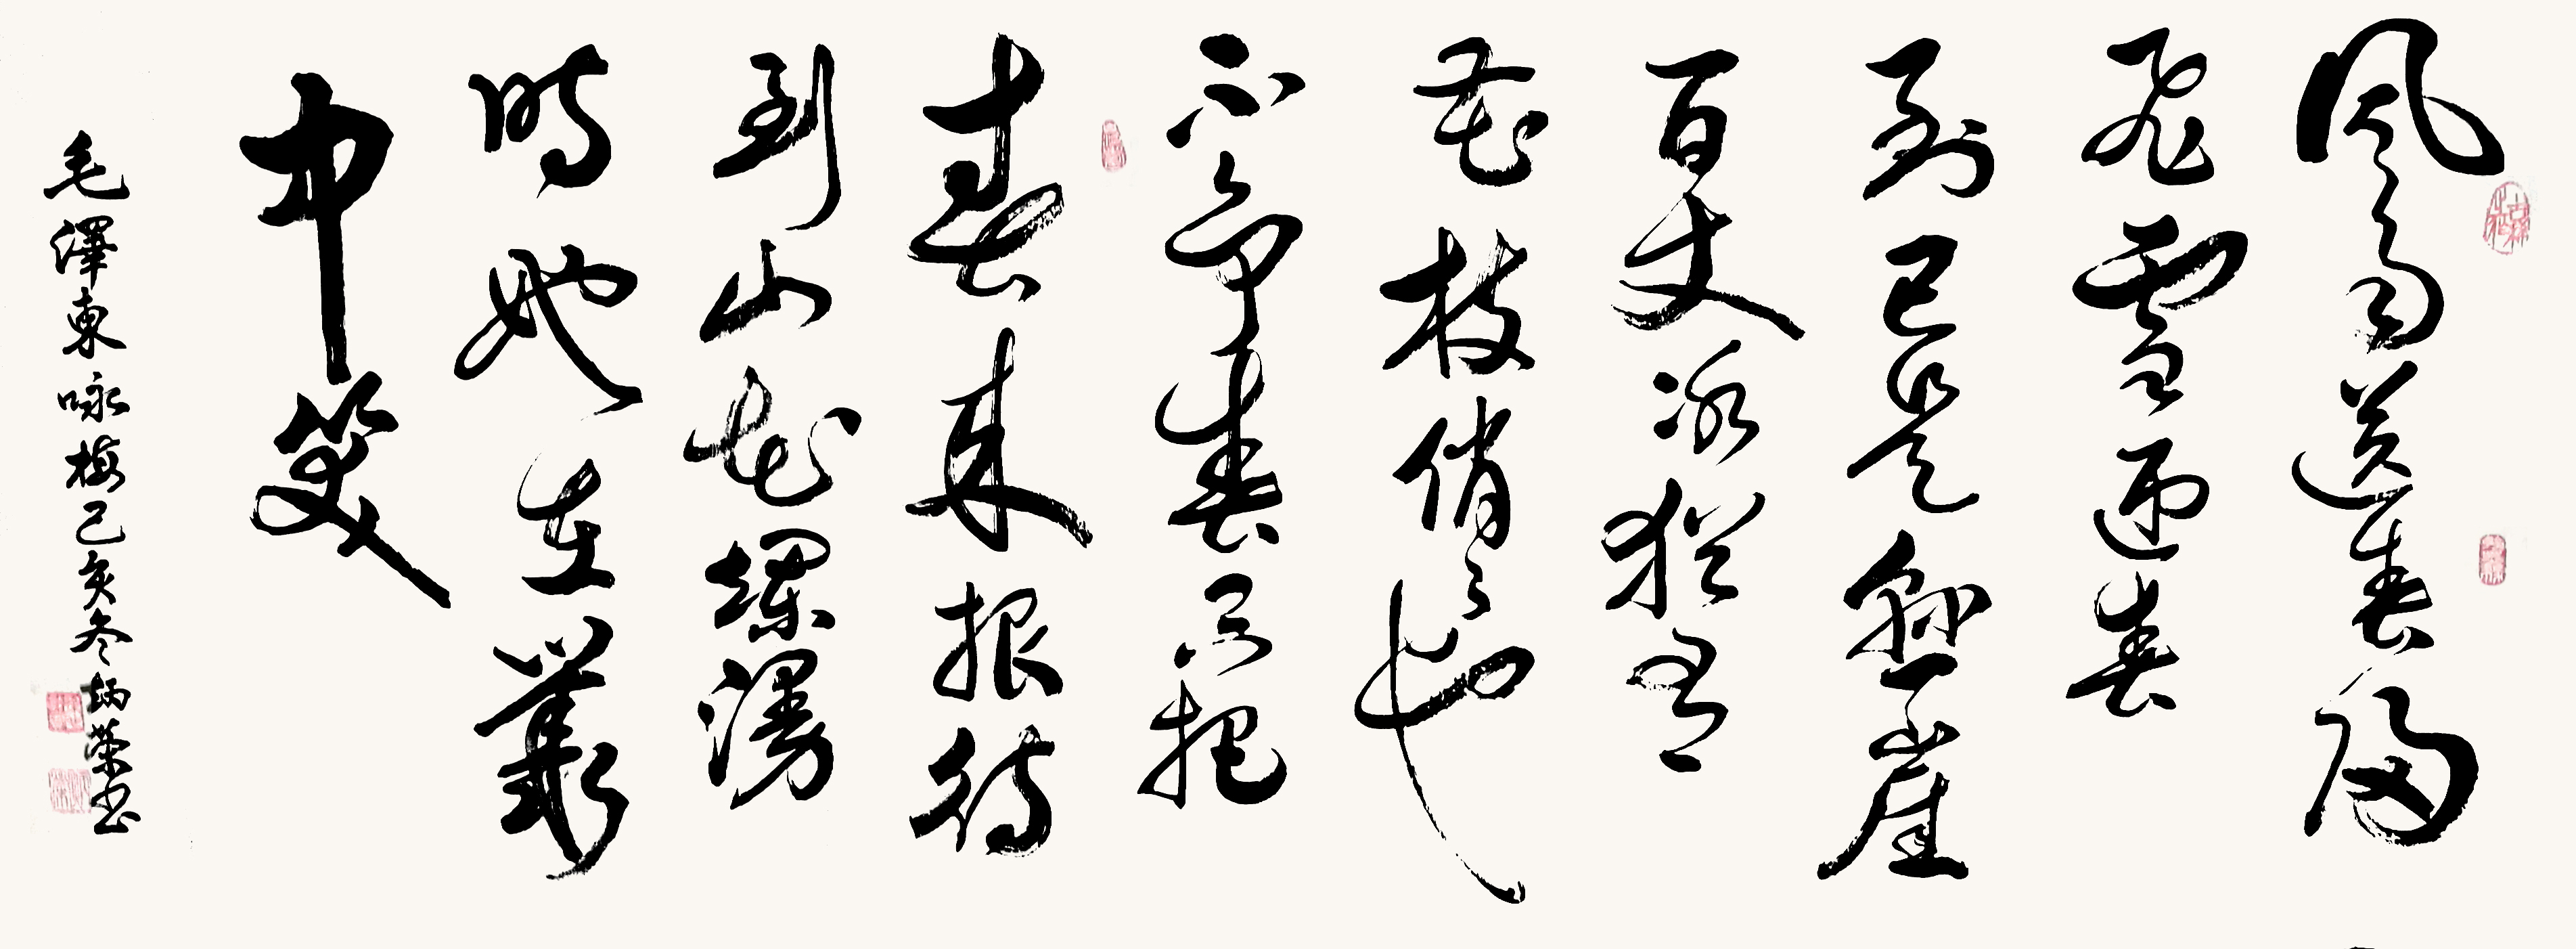 风雨送春歸
飛雪迎春
到已是懸崖
百丈冰猶有
花枝俏々也
不争春只把
春来报待
到山花爛漫
時她在叢
中笑
毛澤東咏梅己亥冬炳榮书